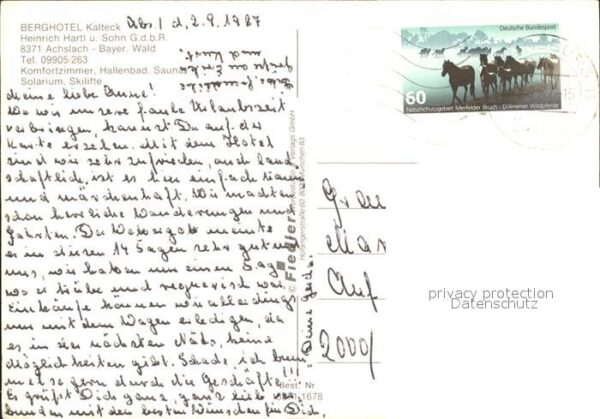 BERGHOTEL Kalteck
Heinrich Hartl u. Sohn G.d.b.R.
8371 Achslach - Bayer. Wald
Tel. 09905/263
Komfortzimmer, Hallenbad, Sauna
Solarium, Skilifte
Abs / d, 2.9.1987
Meine liebe Ursel!
Wo wir unsere faule Urlaubszeit
verbringen, kannst Du auf der
Karte ersehen. Mit dem Hotel
sind wir sehr zufrieden, auch land-
schaftlich, ist es hier einfach traum
und märchenhaft. Wir machten
schon herrliche Wanderungen und
Fahrten. Der Wettergott meinte
es in diesen 14 Tagen sehr gut mit
uns, wir hatten nur einen Tag
wo es trübe und regnerisch war.
Einkäufe können wir allerdings
nur mit dem Wagen erledigen, da
es in der nächsten Nähe, keine
Möglichkeiten gibt. Schade, ich bum
mel so gern durch die Geschäfte!!!
Es grüßt Dich ganz, ganz lieb ver
bunden mit den besten Wünschen für Dich,
Deine Gerda
und Kurt.
© Fiedler
Verlags GmbH
8000 München 83
Best. Nr.
1678
Deutsche Bundespost
60
Naturschutzgebiet Merfelder Bruch - Dülmener Wildpferde
Frau
Mar
Auf
2000/
privacy protection
Datenschutz